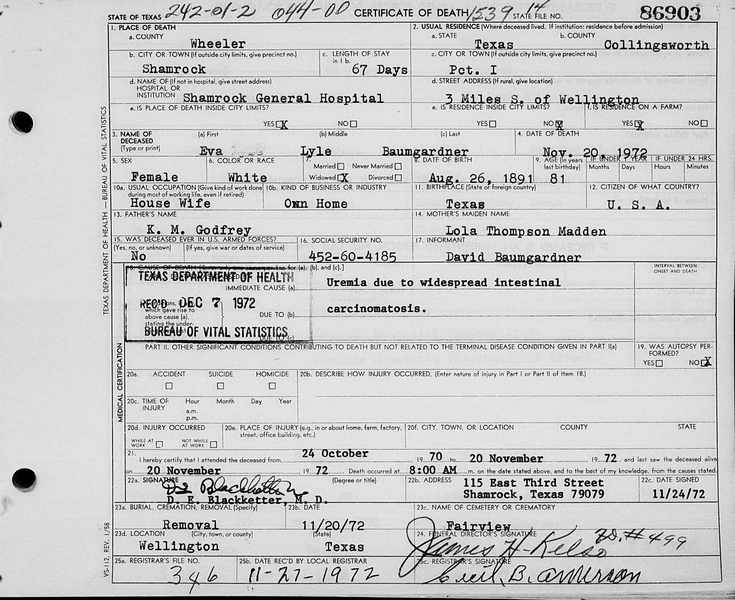 242-01-2 044-00 1539 14
STATE OF TEXAS CERTIFICATE OF DEATH STATE FILE NO. 86903
1. PLACE OF DEATH 2. USUAL RESIDENCE (Where deceased lived. If institution: residence before admission)
a. COUNTY a. STATE b. COUNTY
Wheeler Texas Collingsworth
b. CITY OR TOWN (If outside city limits, give precinct no.) c. LENGTH OF STAY in 1 b. c. CITY OR TOWN (If outside city limits, give precinct no.)
Shamrock 67 Days Pct. I
d. NAME OF (If not in hospital, give street address) HOSPITAL OR INSTITUTION d. STREET ADDRESS (If rural, give location)
Shamrock General Hospital 3 Miles S. of Wellington
e. IS PLACE OF DEATH INSIDE CITY LIMITS? e. IS RESIDENCE INSIDE CITY LIMITS? f. IS RESIDENCE ON A FARM?
YES X NO YES NO X YES X NO
3. NAME OF DECEASED (Type or print) (a) First (b) Middle (c) Last 4. DATE OF DEATH
Eva Lyle Baumgardner Nov. 20, 1972
5. SEX 6. COLOR OR RACE 7. Married Never Married 8. DATE OF BIRTH 9. AGE (In years last birthday) IF UNDER 1 YEAR IF UNDER 24 HRS.
Widowed X Divorced Months Days Hours Minutes
Female White Aug. 26, 1891 81
10a. USUAL OCCUPATION (Give kind of work done during most of working life, even if retired) 10b. KIND OF BUSINESS OR INDUSTRY 11. BIRTHPLACE (State or foreign country) 12. CITIZEN OF WHAT COUNTRY?
House Wife Own Home Texas U. S. A.
13. FATHER'S NAME 14. MOTHER'S MAIDEN NAME
K. M. Godfrey Lola Thompson Madden
15. WAS DECEASED EVER IN U.S. ARMED FORCES? 16. SOCIAL SECURITY NO. 17. INFORMANT
(Yes, no, or unknown) (If yes, give war or dates of service)
No 452-60-4185 David Baumgardner
18. CAUSE OF DEATH (b), and (c).] INTERVAL BETWEEN ONSET AND DEATH
TEXAS DEPARTMENT OF HEALTH
IMMEDIATE CAUSE (a) Uremia due to widespread intestinal
REC'D DEC 7 1972
which gave rise to above cause (a), stating the under- DUE TO (b) carcinomatosis.
BUREAU OF VITAL STATISTICS
PART II. OTHER SIGNIFICANT CONDITIONS CONTRIBUTING TO DEATH BUT NOT RELATED TO THE TERMINAL DISEASE CONDITION GIVEN IN PART I(a) 19. WAS AUTOPSY PERFORMED?
YES NO X
20a. ACCIDENT SUICIDE HOMICIDE 20b. DESCRIBE HOW INJURY OCCURRED. (Enter nature of injury in Part I or Part II of item 18.)
20c. TIME OF INJURY Hour Month Day Year
a.m.
p.m.
20d. INJURY OCCURRED 20e. PLACE OF INJURY (e.g., in or about home, farm, factory, street, office building, etc.) 20f. CITY, TOWN, OR LOCATION COUNTY STATE
WHILE AT WORK NOT WHILE AT WORK
21. I hereby certify that I attended the deceased from 24 October 19 70 to 20 November 19 72. and last saw the deceased alive
on 20 November 19 72. Death occurred at 8:00 AM m. on the date stated above, and to the best of my knowledge, from the causes stated.
22a. SIGNATURE (Degree or title) 22b. ADDRESS 22c. DATE SIGNED
D E Blackketter 115 East Third Street
D. E. Blackketter, M. D. Shamrock, Texas 79079 11/24/72
23a. BURIAL, CREMATION, REMOVAL (Specify) 23b. DATE 23c. NAME OF CEMETERY OR CREMATORY
Removal 11/20/72 Fairview
23d. LOCATION (City, town, or county) (State) 24. FUNERAL DIRECTOR'S SIGNATURE
Wellington Texas James H. Kelso #499
25a. REGISTRAR'S FILE NO. 25b. DATE REC'D BY LOCAL REGISTRAR 25c. REGISTRAR'S SIGNATURE
346 11-27-1972 Cecil B. Anderson
TEXAS DEPARTMENT OF HEALTH — BUREAU OF VITAL STATISTICS
MEDICAL CERTIFICATION
VS-112, REV. 1/58